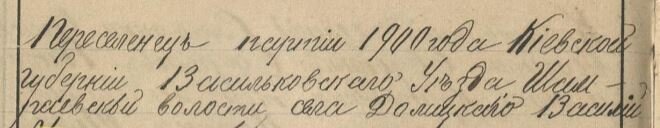 Переселенецъ партіи 1900 года Кіевской
губерніи Васильковскаго Уѣзда Шам-
раевской волости села Долицкаго Василій